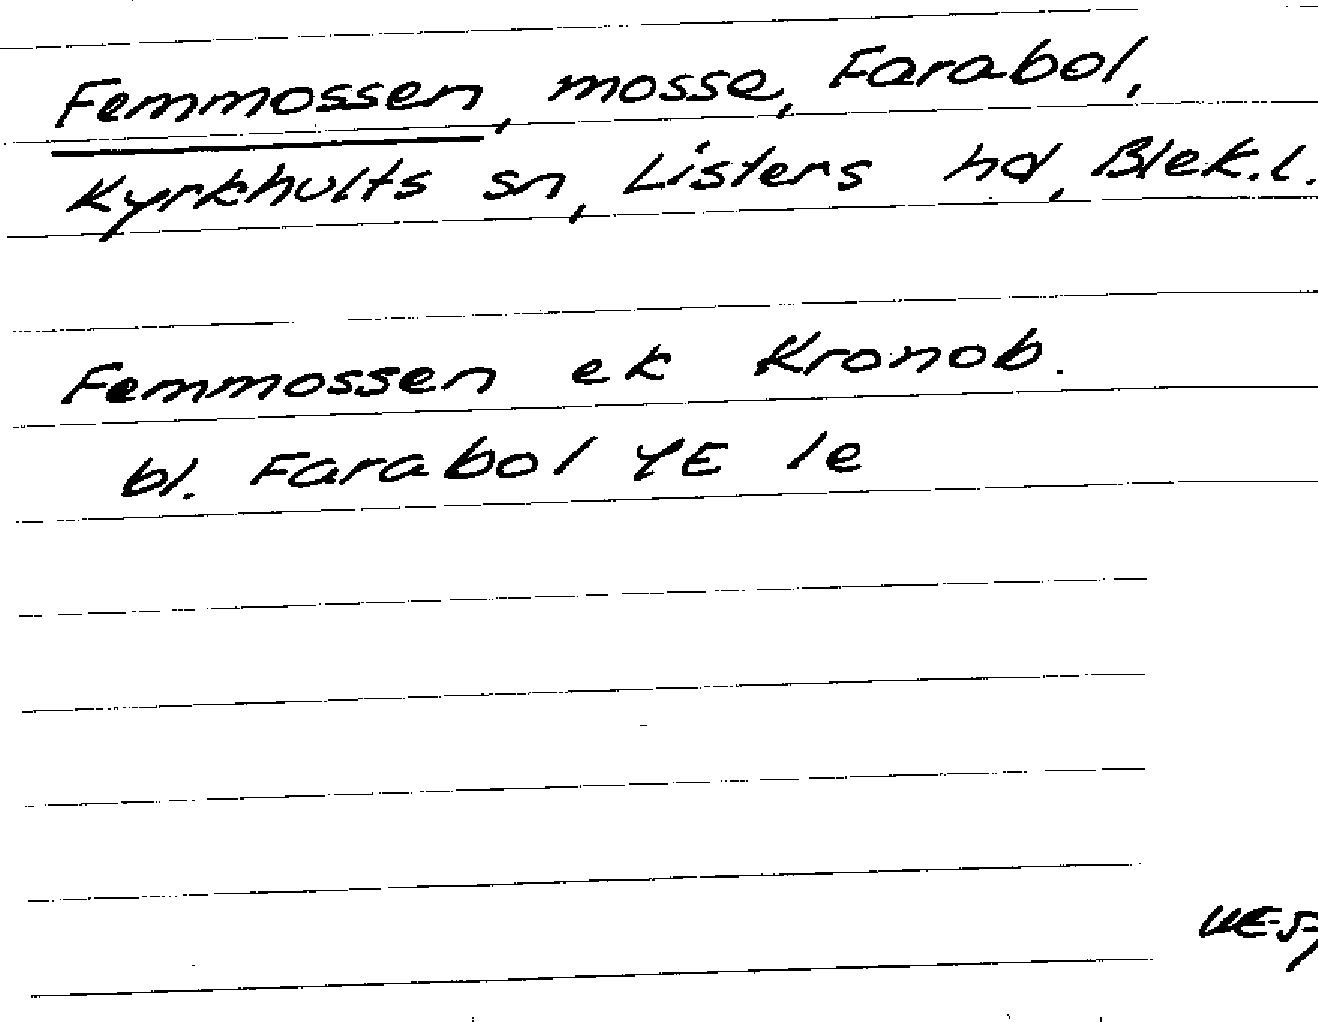 Femmossen, mosse, Farabol,
Kyrkhults sn, Listers hd, Blek.l.
Femmossen ek Kronob.
bl. Farabol YE le